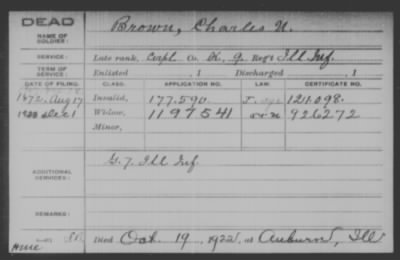 DEAD
NAME OF SOLDIER: Brown, Charles N.
SERVICE: Late rank, Capt Co. K, 9 Reg't Ill Inf.
TERM OF SERVICE: Enlisted , 1 Discharged , 1
DATE OF FILING. CLASS. APPLICATION NO. LAW. CERTIFICATE NO.
1872, Aug 17 Invalid, 177.590 1211.098.
1922 Dec 1 Widow, 1197541 926272
Minor,
ADDITIONAL SERVICES: G. 7. Ill Inf.
REMARKS:
Died Oct. 19, 1922, at Auburn, Ill